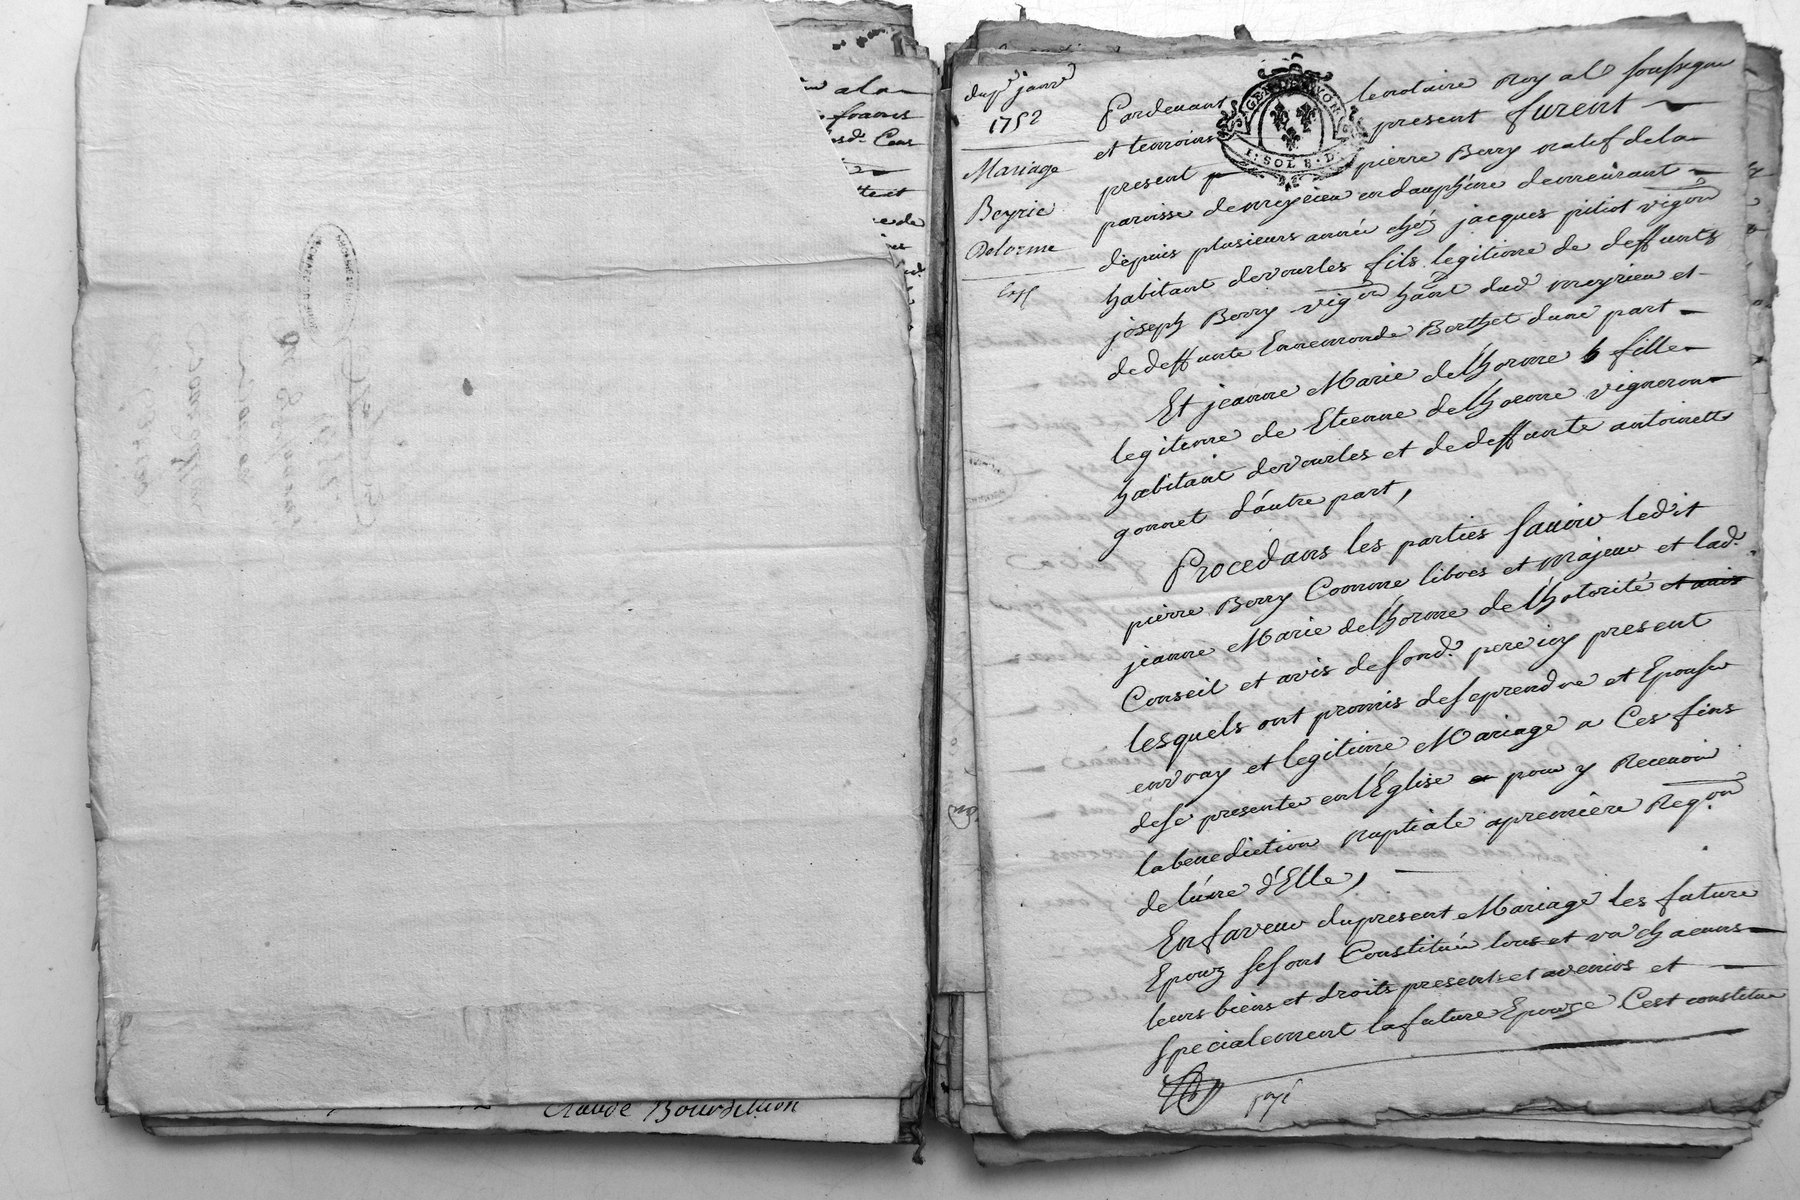 Claude Bourdillion
1752
Mariage
Beyrie
Delorme
GEN. DE LYON
1: SOL 8. D.
Pardeuant lenotaire Royal soussigne
et temoins present furent
present pierre Berry natif dela
paroisse demeyrieu en dauphine demeurant
depuis plusieurs année chéz jacques pitiot vigon
habitant devourles fils legitime de deffunts
joseph Berry vigon hant dud meyrieu et
dedeffunte Ennemonde Berthet dune part
Et jeanne Marie delhorme fille
legitime de Etienne delhorme vigneron
habitant devourles et dedeffunte antoinette
gonnet d'autre part,
Procedans les parties sauoir ledit
pierre Berry Comme libres et majeur et lad.
jeanne Marie delhorme delhotorité et avis
Conseil et avis desond. pere icy present
lesquels ont promis deseprendre et Epouser
envray et legitime Mariage a Ces fins
dese presenter enl'Eglise pour y Receuoir
labenediction nuptiale apremiere Reqon
delúne d'Elle,
Enfaveur dupresent Mariage les future
Epouz sesont Constitués tous et un chacuns
leurs biens et droits presents et avenirs et
specialement lafuture Epouze C'est constitue